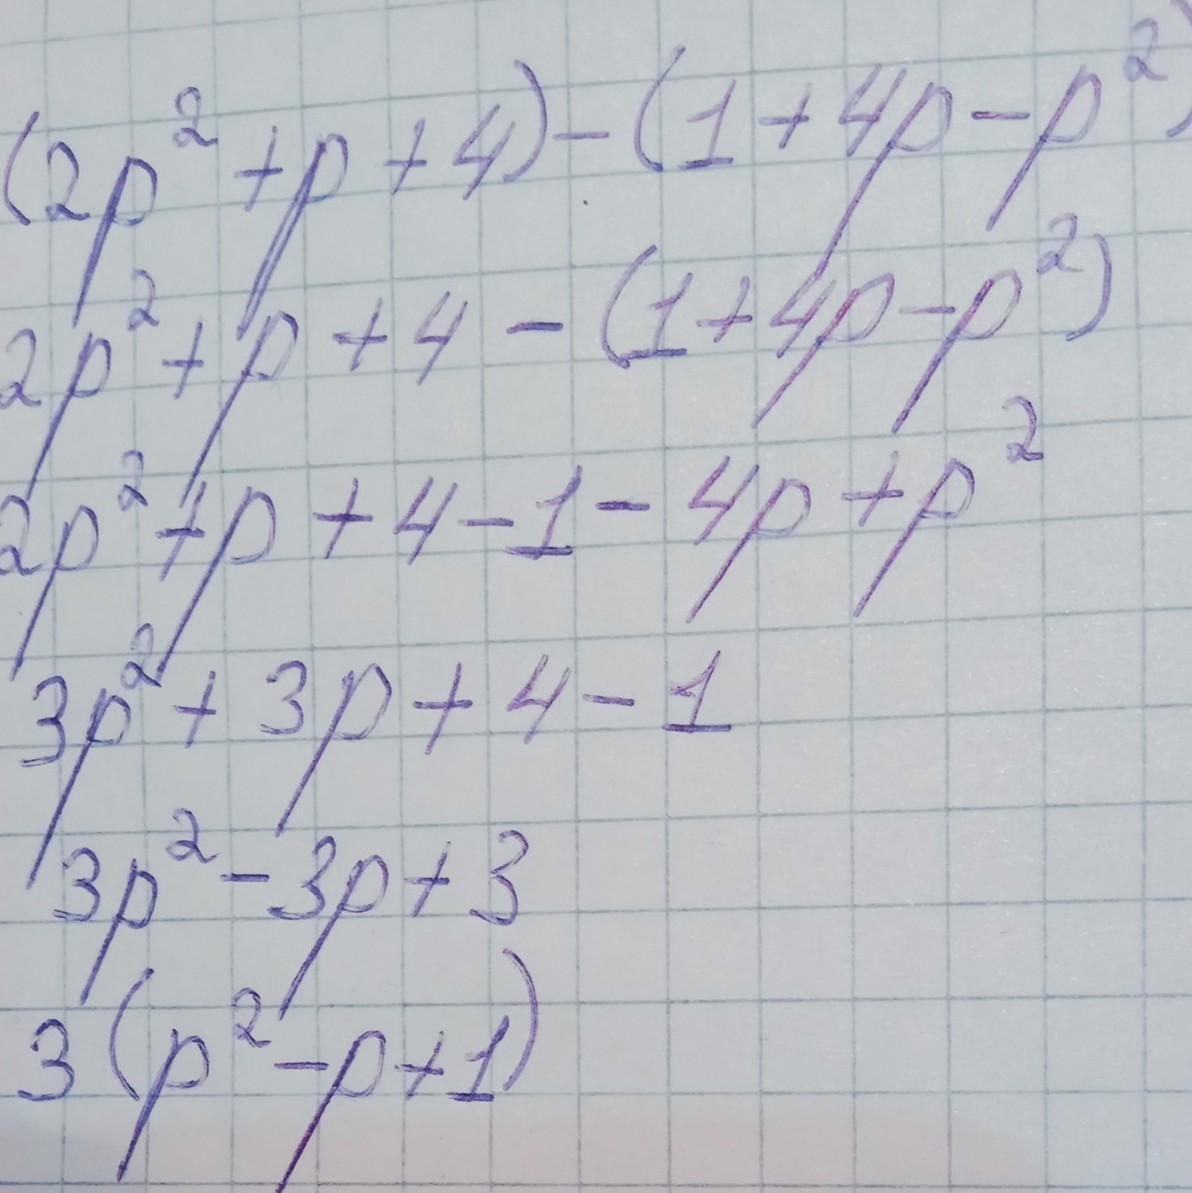 (2p² + p + 4) - (1 + 4p - p²)
2p² + p + 4 - (1 + 4p - p²)
2p² + p + 4 - 1 - 4p + p²
3p² + 3p + 4 - 1
3p² - 3p + 3
3(p² - p + 1)